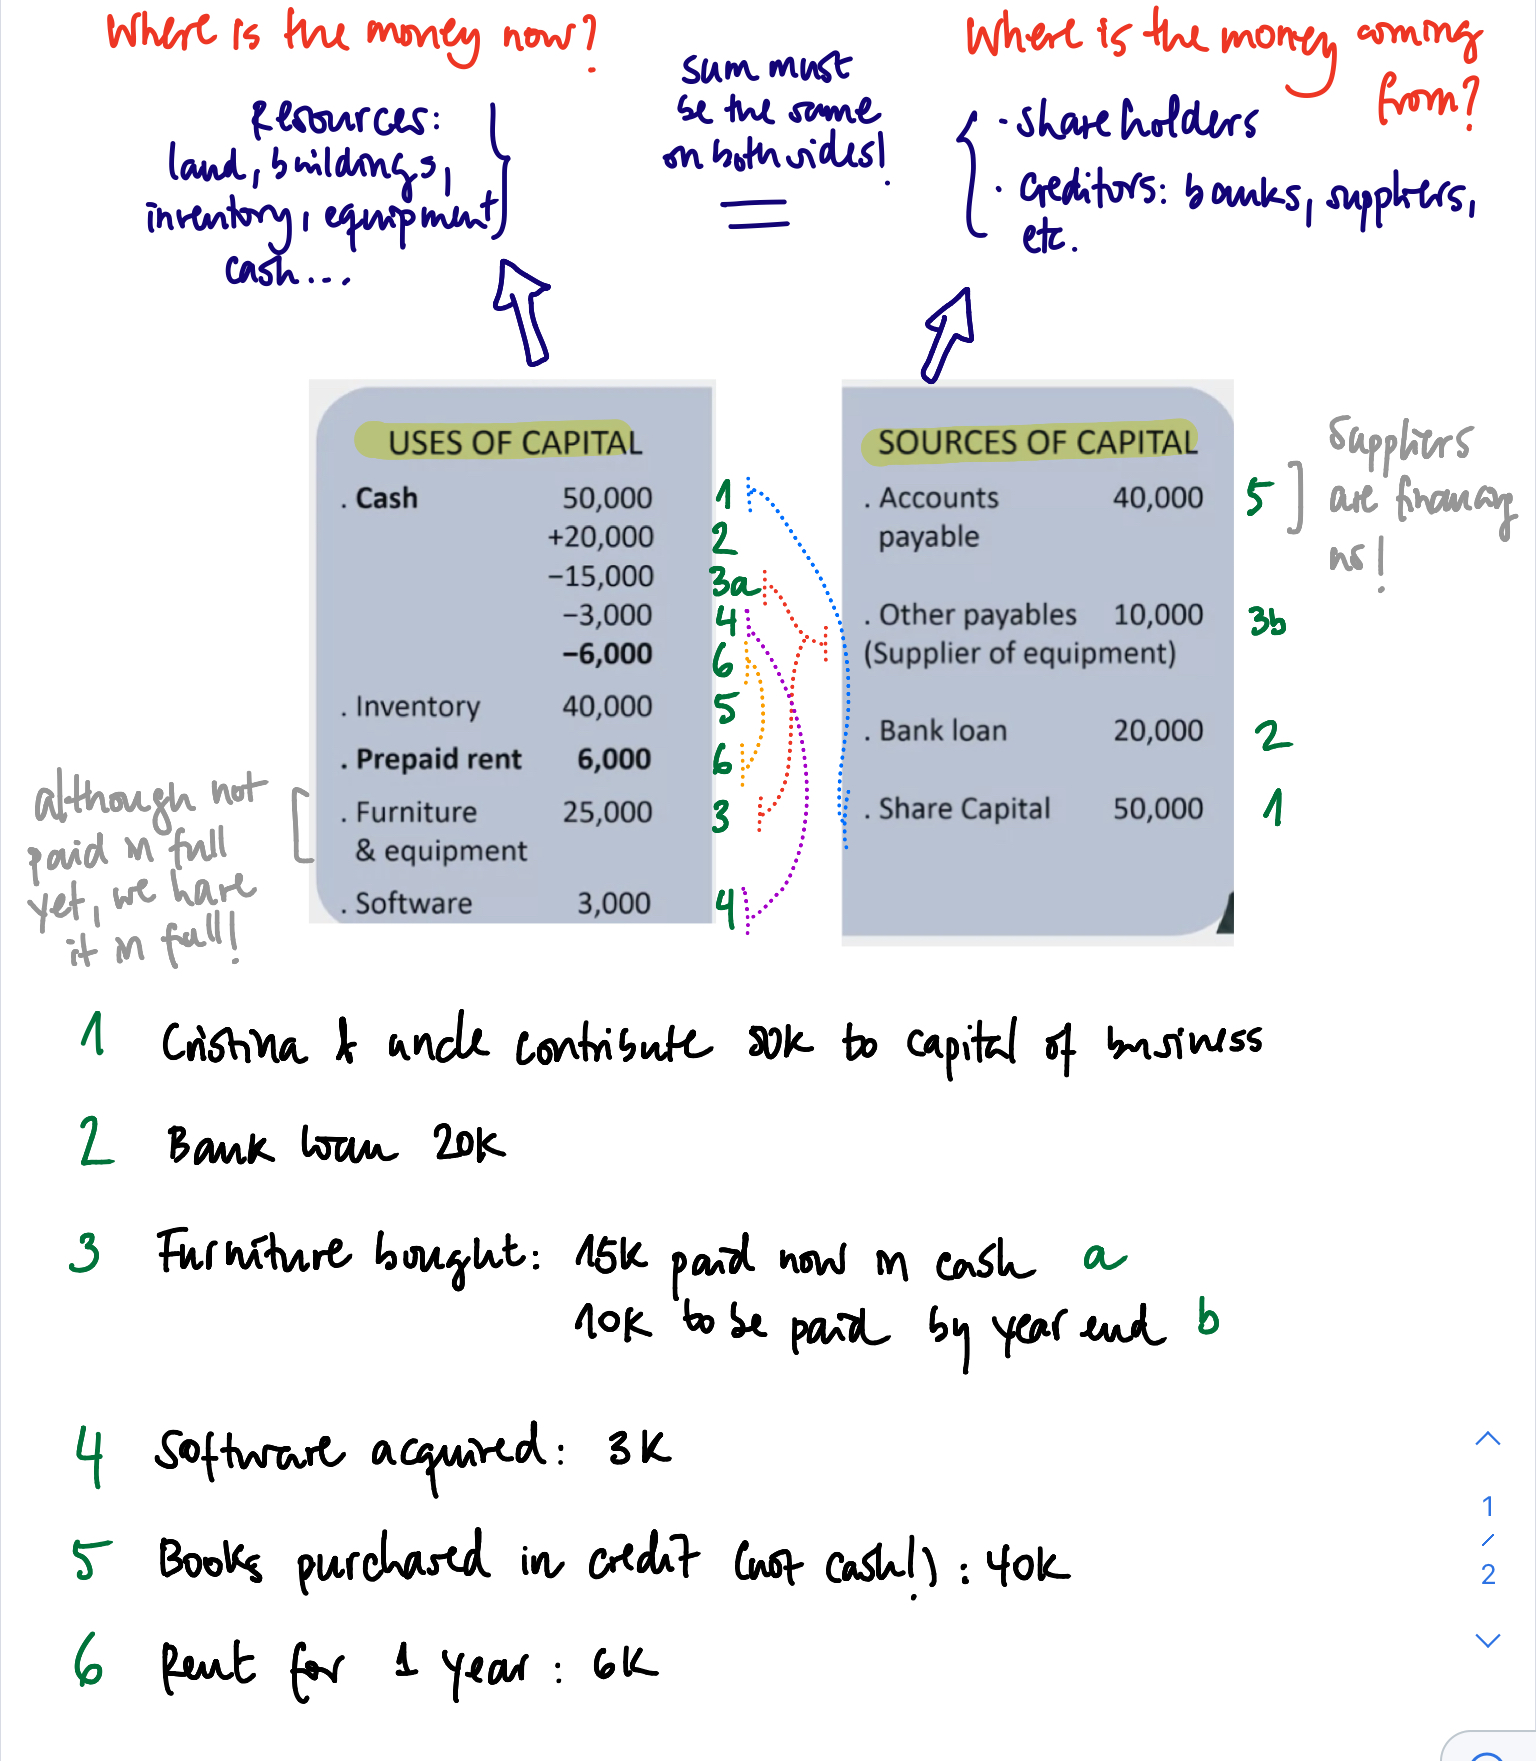 Where is the money now?
Resources:
land, buildings,
inventory, equipment
cash...
sum must
be the same
on both sides!
=
Where is the money coming
from?
· shareholders
· Creditors: banks, suppliers,
etc.
USES OF CAPITAL
. Cash 50,000 1
+20,000 2
−15,000 3a
−3,000 4
−6,000 6
. Inventory 40,000 5
. Prepaid rent 6,000 6
. Furniture 25,000 3
& equipment
. Software 3,000 4
although not
paid in full
yet, we have
it in full!
SOURCES OF CAPITAL
. Accounts 40,000 5
payable
. Other payables 10,000 3b
(Supplier of equipment)
. Bank loan 20,000 2
. Share Capital 50,000 1
Suppliers
are financing
us!
1 Cristina & uncle contribute 50K to capital of business
2 Bank loan 20K
3 Furniture bought: 15K paid now in cash a
10K to be paid by year end b
4 Software acquired: 3K
5 Books purchased in credit (not cash!): 40K
6 Rent for 1 year: 6K
1
/
2